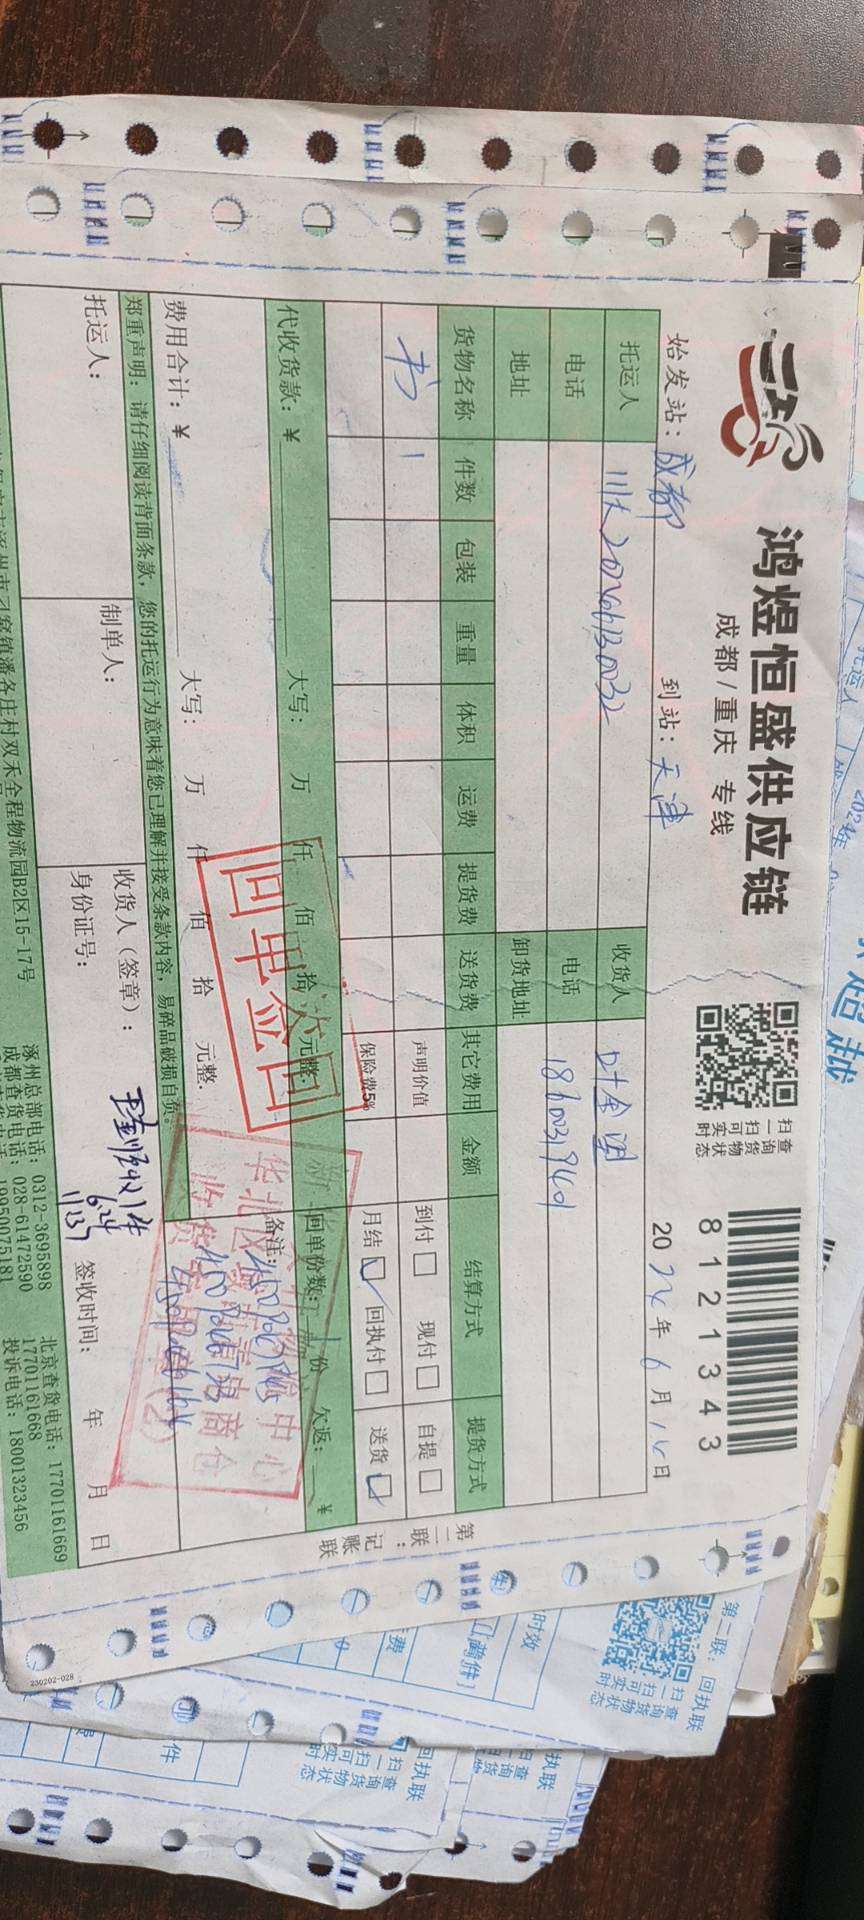 鸿煜恒盛供应链
成都/重庆 专线
扫一扫
查询货物
可实时状态
8121343
始发站：成都
到站：天津
2024年6月15日
托运人
川大202406130032
收货人
叶金盟
电话
电话
18600319401
地址
卸货地址
货物名称 件数 包装 重量 体积 运费 提货费 送货费 其它费用 金额 结算方式 提货方式
书 1
声明价值
到付 现付 自提
保险费5‰
月结 回执付 送货
代收货款：￥ 大写： 万 仟 佰 拾 元整.
回单份数： 份 欠返： ￥
费用合计：￥ 大写： 万 仟 佰 拾 元整.
备注：
回单签回
郑重声明：请仔细阅读背面条款，您的托运行为意味着您已理解并接受条款内容，易碎品破损自负。
托运人：
制单人：
收货人（签章）：
身份证号：
6.24
11:37
签收时间： 年 月 日
双禾全程物流园B2区15-17号
涿州总部电话：0312-3695898
北京查货电话：17701161669
成都查货电话：028-61472590
17701161668
19950075181
投诉电话：18001323456
第二联：记账联
230202-028
第二联：回执联
扫一扫
查询货物
可实时状态
时效
费
件
回执联
扫一扫
查询货物
可实时状态
执联